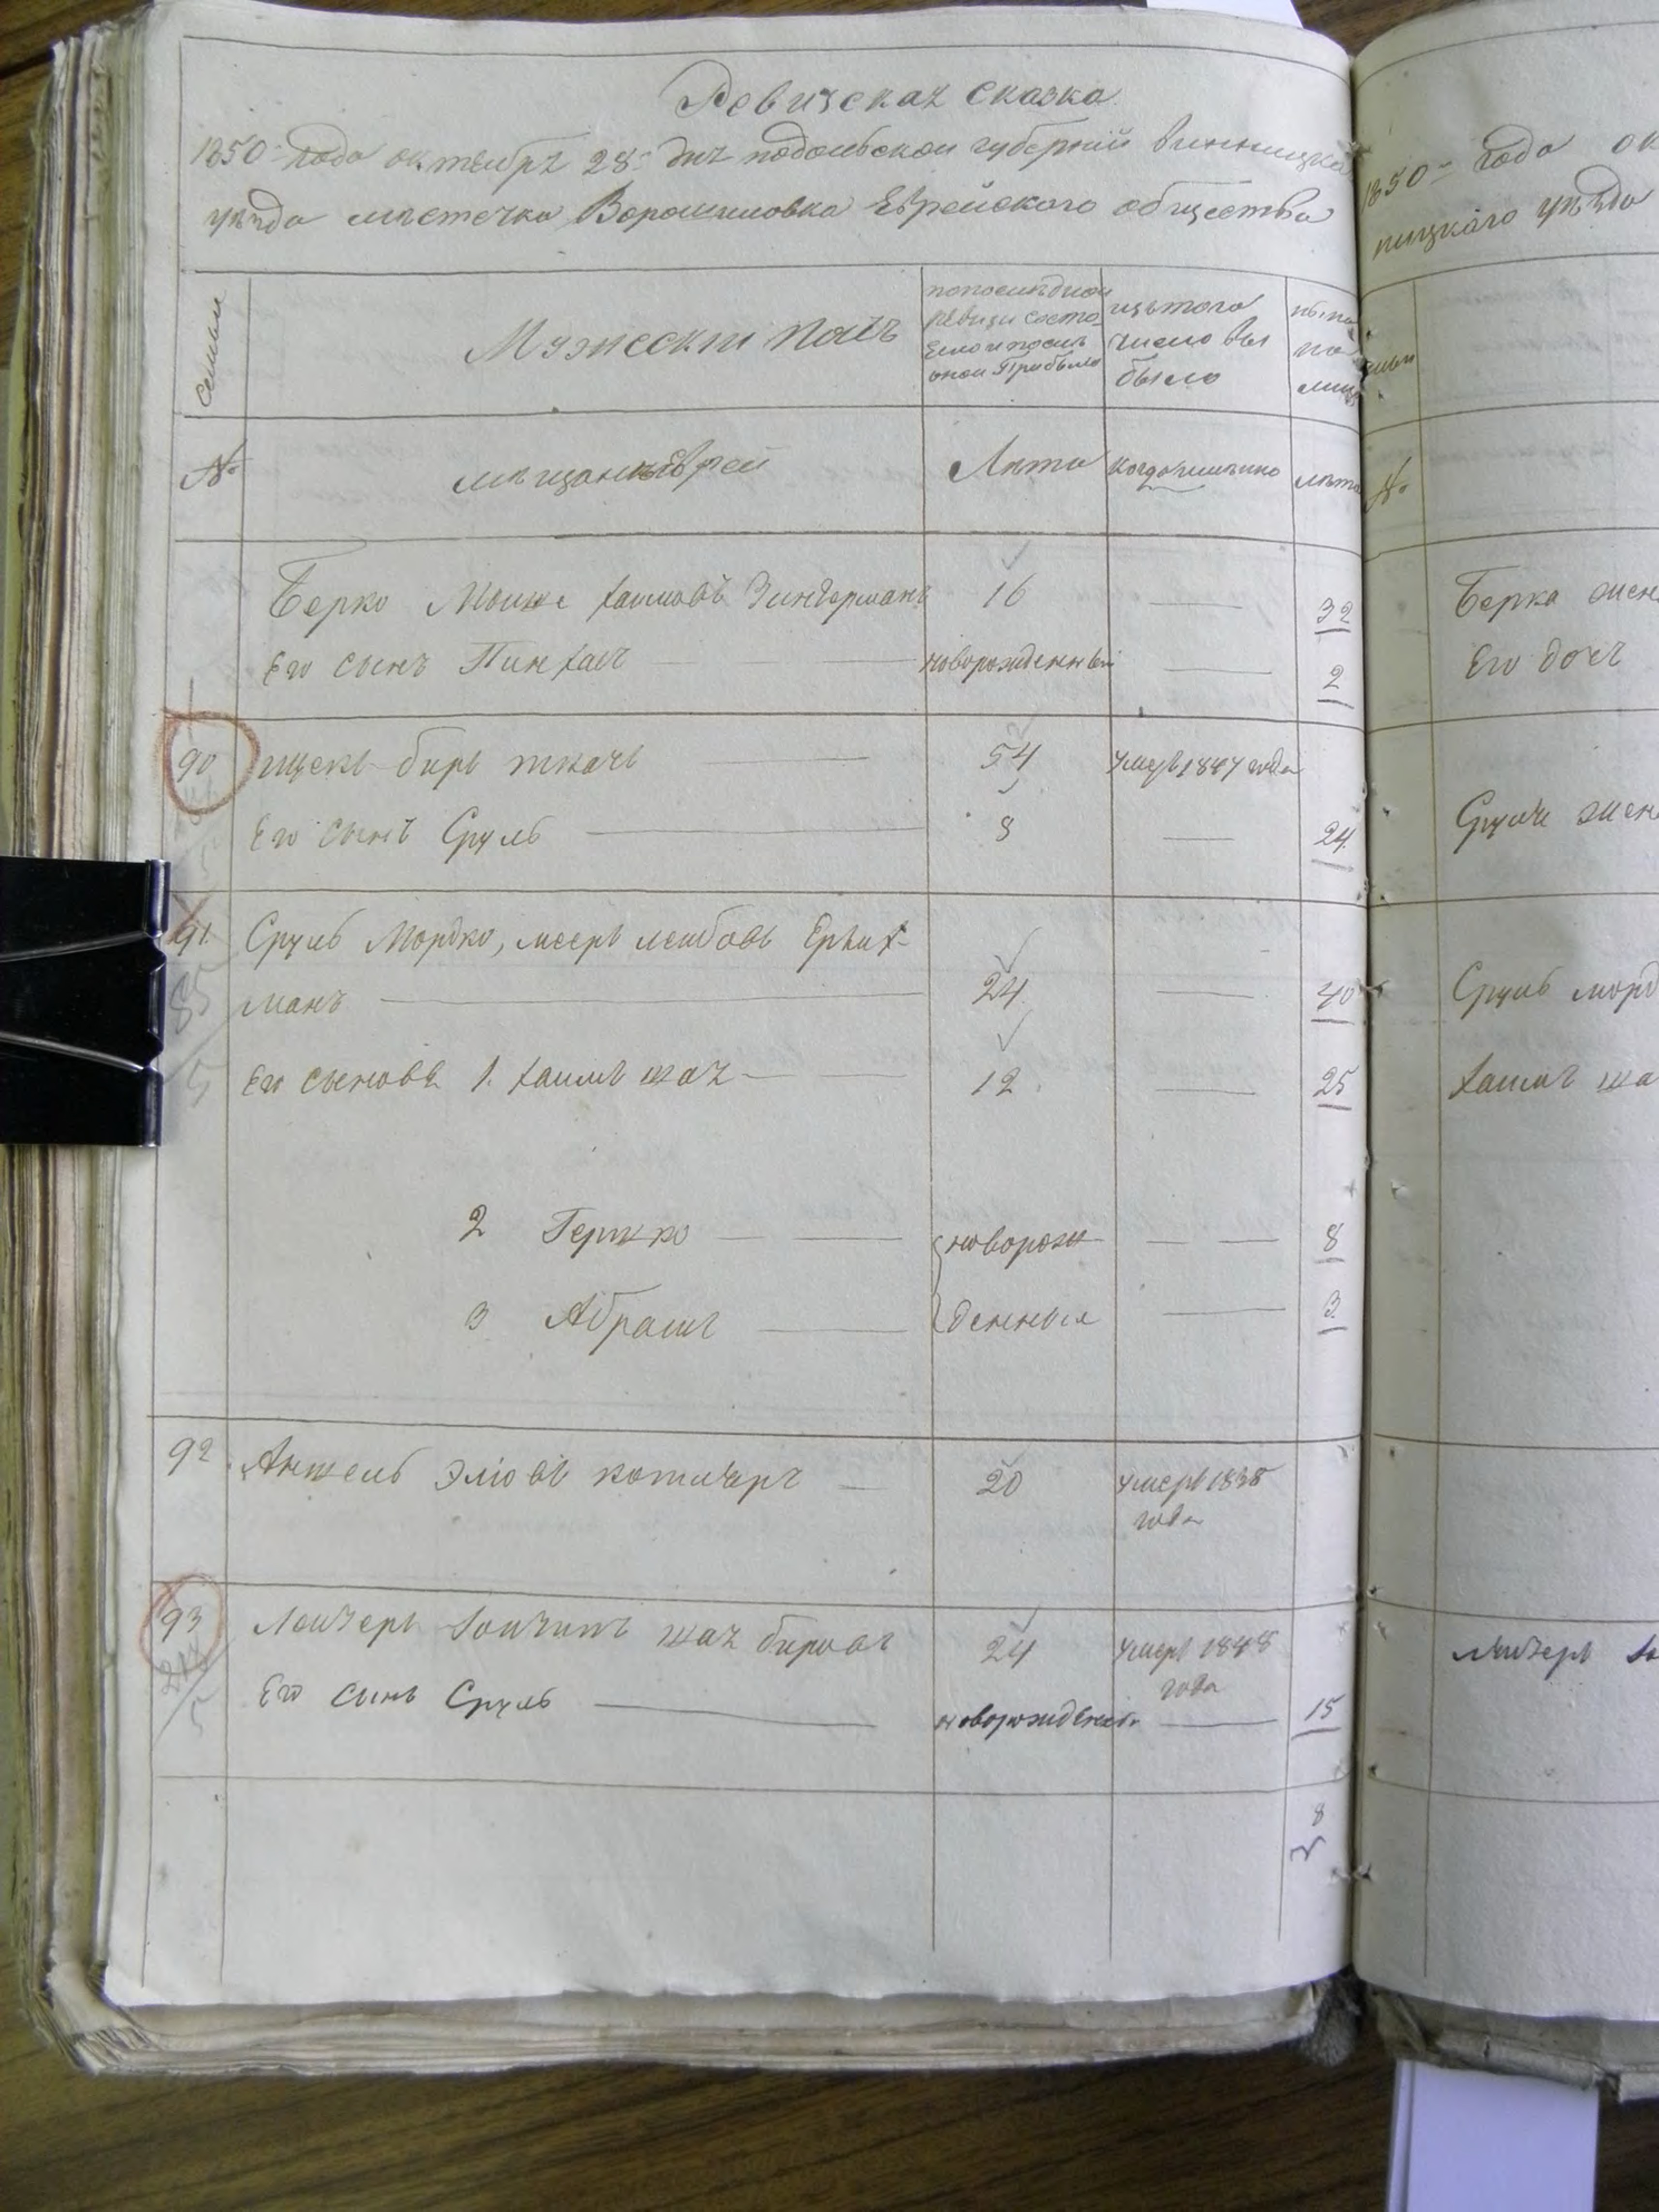 Ревизская сказка
1850 года октября 28 дня подольской губернии винницка
уѣзда мѣстечка Ворошиловка Еврейского общества
семьи
Мужескій полъ
попослѣдной ревизи состо яло и посль оной Прибыло
изътого число вы было
ныне на лицо
№
мѣщане Евреи
Лѣта
когда именно
лѣта
Берко Мошко хаимовъ Зингерманъ 16 32
Его сынъ Пинхасъ новорожденный 2
90 ицекъ беръ ткачъ 54 умеръ 1847 года
Его сынъ Сруль 8 24
91 Сруль Мордко, меерь лейбовъ Ерлих-
манъ 24 40
Его сыновя 1. хаимъ шая 12 25
2 Гершко новорож- 8
3 Абрамъ денные 3
92 Аншель Элiовъ котляръ 20 умеръ 1838
года
93 Лейзеръ шая беровъ 24 умеръ 1848
года
Его сынъ Сруль новорожденъ 15
8
1850 года ок
ницкаго уѣзда
№
Берка жен
Его доч
Сруля жен
Сруль морд
хаима ша
Лейзеръ